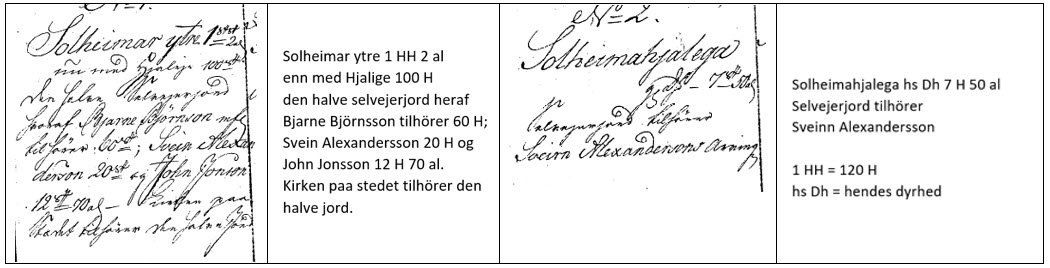 No 1.
Solheimar ytre
med Hjalige 100
den halve Selvejerjord
heraf Bjarne Björnson
tilhører 60; Svein Alexan
derson 20 og John Jonson
12 70 al – Kirken paa
Stædet tilhører den halve Jord
Solheimar ytre 1 HH 2 al
enn med Hjalige 100 H
den halve selvejerjord heraf
Bjarne Björnsson tilhörer 60 H;
Svein Alexandersson 20 H og
John Jonsson 12 H 70 al.
Kirken paa stedet tilhörer den
halve jord.
No 2.
Solheimahjalega
7 50 al
Selvejerjord tilhører
Sveirn Alexandersons Arving
Solheimahjalega hs Dh 7 H 50 al
Selvejerjord tilhörer
Sveinn Alexandersson
1 HH = 120 H
hs Dh = hendes dyrhed